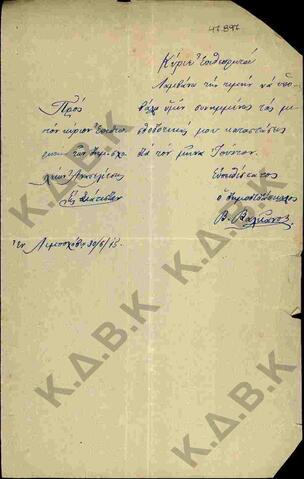 47.897
Κύριε Ἐπιθεωρητά
Λαμβάνω τὴν τιμὴν νὰ ὑπο-
βάλω ὑμῖν συνημμένως τὰς μι-
σθοδοτικάς μου καταστάσεις
διὰ τὸν μῆνα Ἰούνιον.
Εὐπειθέστατος
ὁ δημοδιδάσκαλος
Πρὸς
τὸν κύριον Ἐπιθεω-
ρητὴν τῶν δημ. σχο-
λείων
Εἰς Σιάτισταν
Ἐν 30/6/15
Κ.Δ.Β.Κ
Κ.Δ.Β.Κ
Κ.Δ.Β.Κ